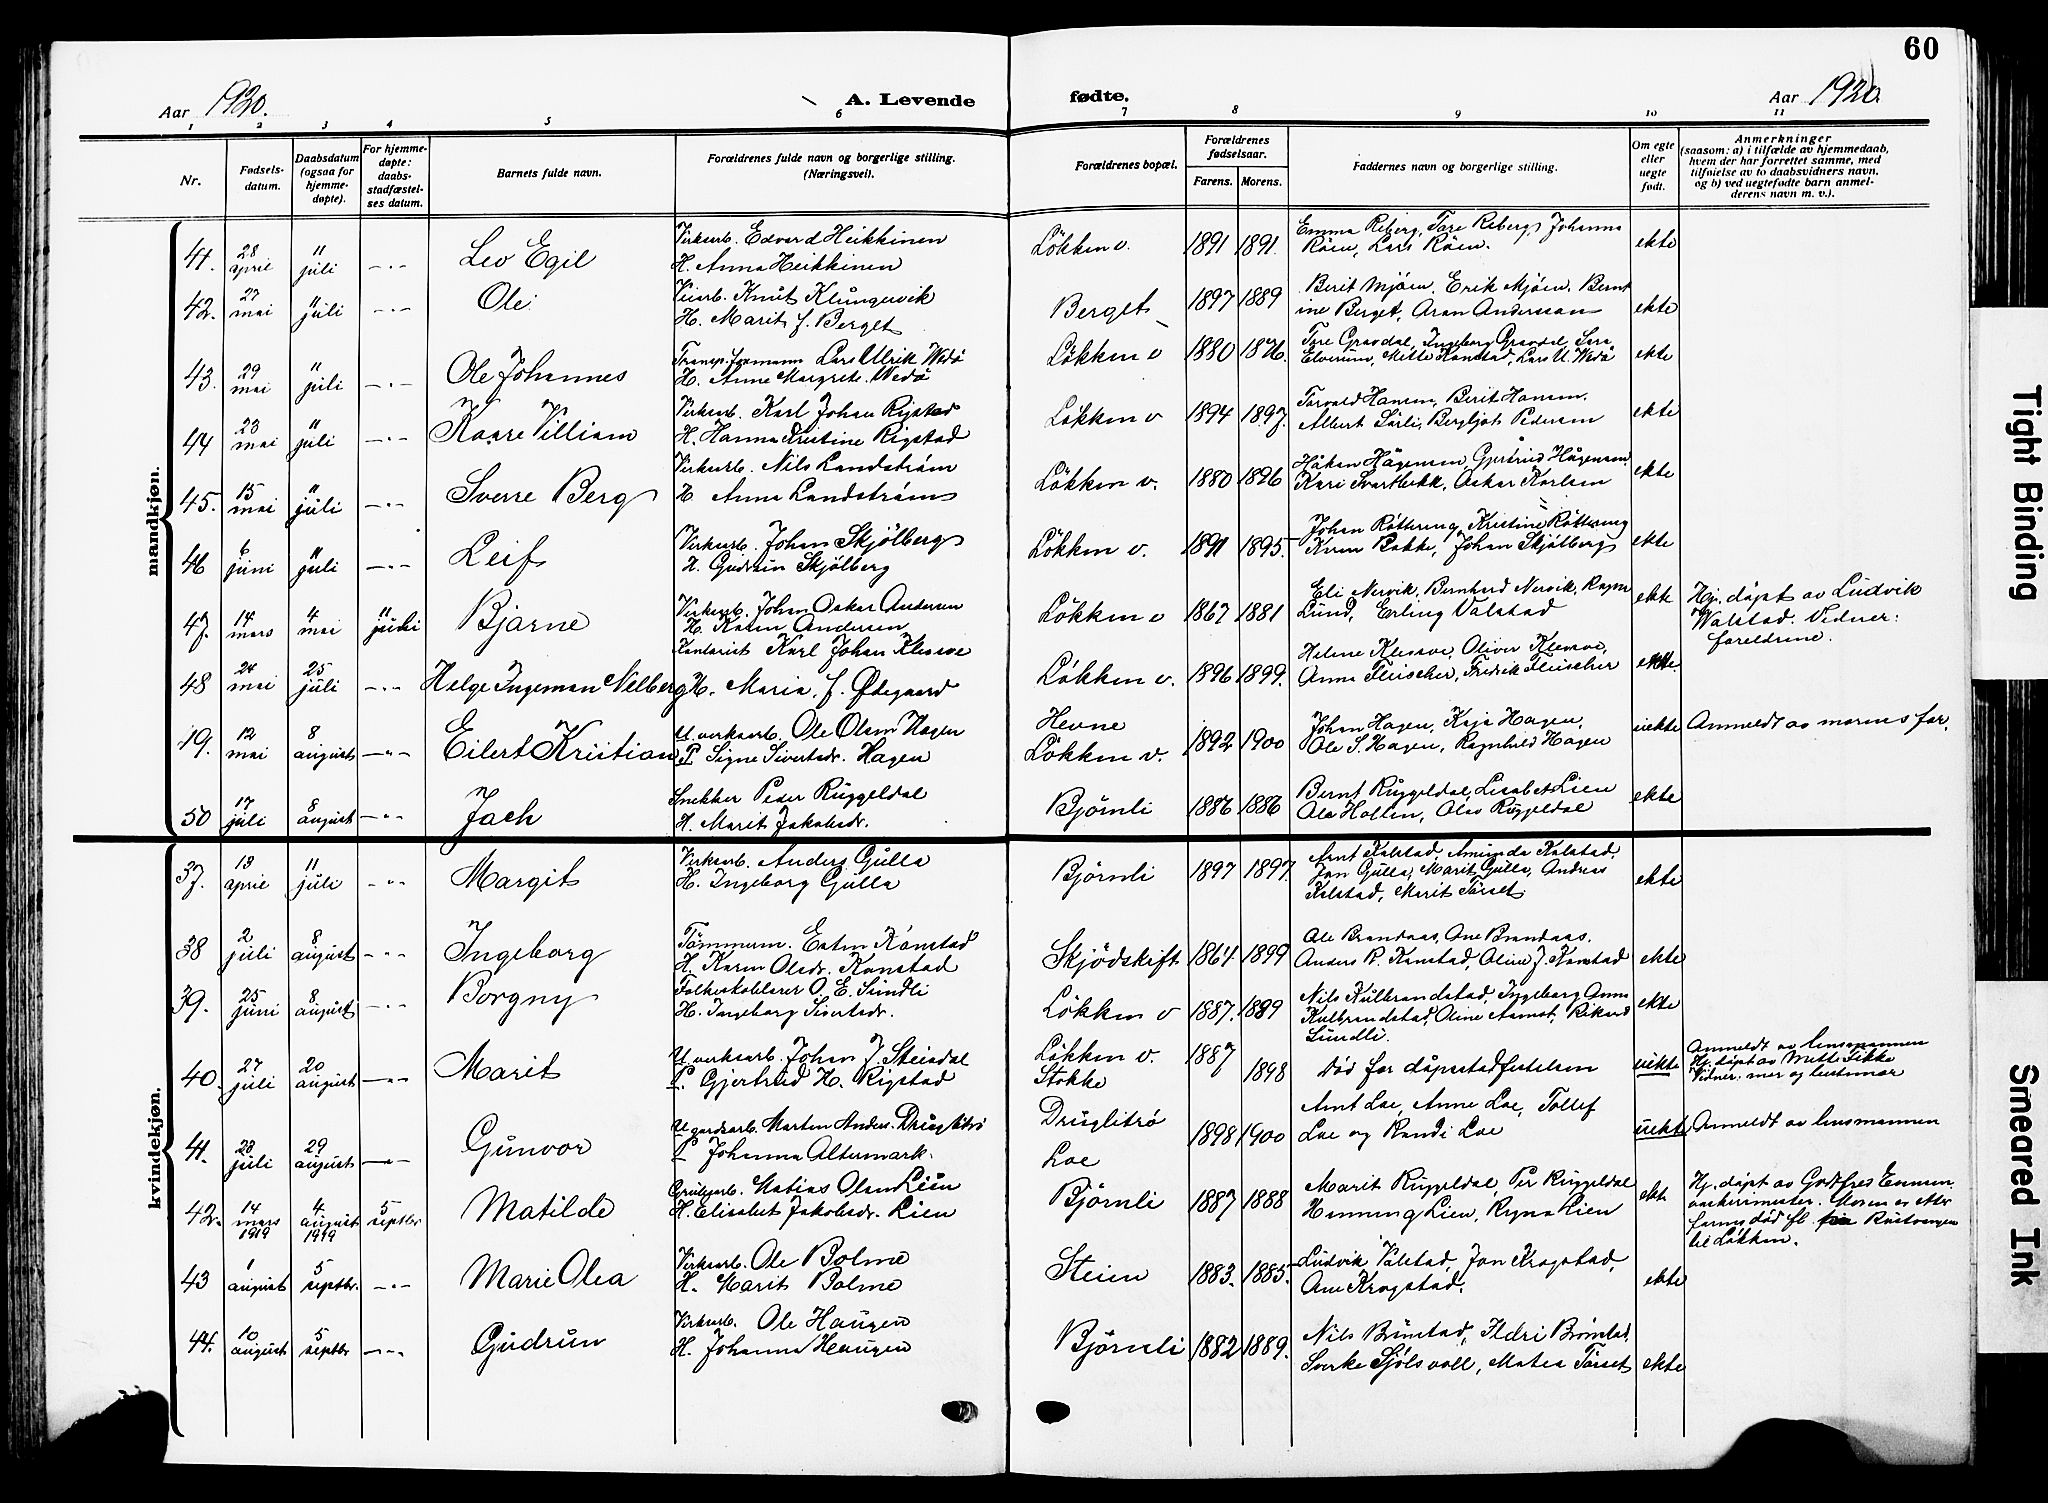 60
Aar 1920.
A. Levende
fødte.
Aar 1920.
1 2 3 4 5 6 7 8 9 10 11
Nr.
Fødsels-
datum.
Daabsdatum
(ogsaa for
hjemme-
døpte).
For hjemme-
døpte:
daabs-
stadfæstel-
ses datum.
Barnets fulde navn.
Forældrenes fulde navn og borgerlige stilling.
(Næringsvei).
Forældrenes bopæl.
Forældrenes
fødselsaar.
Farens.
Morens.
Faddernes navn og borgerlige stilling.
Om egte
eller
uegte
født.
Anmerkninger
(saasom: a) i tilfælde av hjemmedaab,
hvem der har forrettet samme, med
tilføielse av to daabsvidners navn,
og b) ved uegtefødte barn anmel-
derens navn m. v.).
mandkjøn.
41. 28 april 11 juli -"- Leo Egil
Virksarb. Edvard Heikkinen
H. Anna Heikkinen
Løkken v. 1891 1891.
Emma Reberg, Tore Reberg, Johanna
Røen, Lars Røen.
ekte
42. 27 mai 11 juli -"- Ole
Veiarb. Knut Klungervik
H. Marit f. Berget
Berget 1897 1889
Berit Mjøen, Erik Mjøen, Bernt
ine Berget, Aron Andersson
ekte
43. 29 mai 11 juli -"- Ole Johannes
Transp.formann Lars Ulrik Wedø
H. Anne Margrete Wedø
Løkken v 1880 1876.
Tore Gravdal, Ingeborg Gravdal, Sara
Elverum, Mette Kanstad, Lars U. Wedø
ekte
44 23 mai 11 juli -"- Kaare Villiam
Virksarb. Karl Johan Rigstad
H. Hanna Kristine Rigstad
Løkken v 1894 1897.
Torvald Hansen, Berit Hansen.
Albert Sørli, Bergljot Pedersen
ekte
45. 15 mai 11 juli -"- Sverre Berg
Virksarb. Nils Landstrøm
H Anna Landstrøm
Løkken v. 1880 1896
Håkon Hågensen, Gjertrud Hågensen
Kari Svartbekk, Oskar Karlsen
ekte
46 6 juni 11 juli -"- Leif
Virksarb. Johan Skjølberg
H. Gudrun Skjølberg
Løkken v. 1891 1895.
Johan Røttereng, Kristine Røttereng
Karen Bakke, Johan Skjølberg
ekte
47. 14 mars 4 mai 11 juli Bjarne
Virksarb. Johan Oskar Andersen
H. Karen Andersen
Løkken v 1867 1881
Eli Nervik, Bernhard Nervik, Ragna
Lund, Erling Valstad
ekte
Hj. døpt av Ludvik
Valstad. Vidner:
foreldrene.
48 24 mai 25 juli -"- Helge Ingeman Nelberg
Kontorist Karl Johan Klessve
H. Maria, f. Ødegaard
Løkken v. 1896 1899.
Helene Klessve, Oliver Klessve,
Anna Fleischer, Fredrik Fleischer
ekte.
19. 12 mai 8 august -"- Eilert Kristian
U. verksarb. Ole Olsen Hagen
P. Signe Sivertsdr. Hagen
Hevne
Løkken v. 1892 1900
Johan Hagen, Kaja Hagen,
Ole S. Hagen, Ragnhild Hagen
uekte
Anmeldt av morens far.
50 17 juli 8 august -"- Jach
Snekker Peder Ruggeldal
H. Marit Jakobsdr.
Bjørnli 1886 1886
Bernt Ruggeldal, Lisabet Lien
Ola Holten, Olav Ruggeldal
ekte
kvindekjøn.
37. 13 april 11 juli -"- Margit
Virksarb. Anders Gulla
H. Ingeborg Gulla
Bjørnli 1897 1897.
Arnt Kalstad, Amunda Kalstad,
Jon Gulla, Marit Gulla, Andreas
Kalstad, Marit Tørset
ekte
38 2 juli 8 august -"- Ingeborg
Tømmerm. Esten Kanstad
H. Karen Olsdr. Kanstad
Skjødskift 1864 1899
Ole Brandaas, Ane Brandaas.
Anders R. Kanstad, Oline J. Kanstad
ekte
39. 25 juni 8 august -"- Borgny
Folkeskolelærer O. E. Sundli
H. Ingeborg Sivertsdr.
Løkken v 1887. 1889
Nils Kulbrandstad, Ingeborg Anna
Kulbrandstad, Oline Aamot, Rikard
Sundli.
ekte
40. 27 juli 20 august -"- Marit
U. verksarb. Johan J. Steisdal
P. Gjertrud H. Rigstad
Løkken v. 1887
Stokke 1898
Død før dåpsstadfestelsen
uekte
Anmeldt av lensmannen
Hj. døpt av Mette Sikke
Vidner: mor og bestemor
41. 23 juli 29 august -"- Gunvor
U. gardsarb. Marten Anders. Druglitrø
P Johanna Altermark.
Druglitrø
Loe 1898 1900
Arnt Loe, Anne Loe, Tollef
Loe og Randi Loe
uekte
Anmeldt av lensmannen
42. 14 mars 1919 4. august 1919 5 septbr Matilde
Grubearb. Matias Olsen Lien
H. Elisabet Jakobsdr. Lien
Bjørnli 1887 1888
Marit Ruggeldal, Per Ruggeldal
Henning Lien, Ragna Lien
ekte
Hj. døpt av Godtfred Evensen,
vaskerimester. Moren er etter
farens død fl. fra Røstvangen
til Løkken.
43 1 august 5 septbr. -"- Marie Olea
Virksarb. Ole Bolme
H. Marit Bolme
Steien 1883. 1885.
Ludvik Valstad, Jon Krogstad,
Ane Krogstad.
ekte
44. 10 august 5 septbr -"- Gudrun
Virksarb. Ole Haugen
H. Johanna Haugen
Bjørnli 1882 1889.
Nils Brønstad, Ildri Brønstad,
Sverke Sjølsvoll, Matea Tørset
ekte
Tight Binding
Smeared Ink